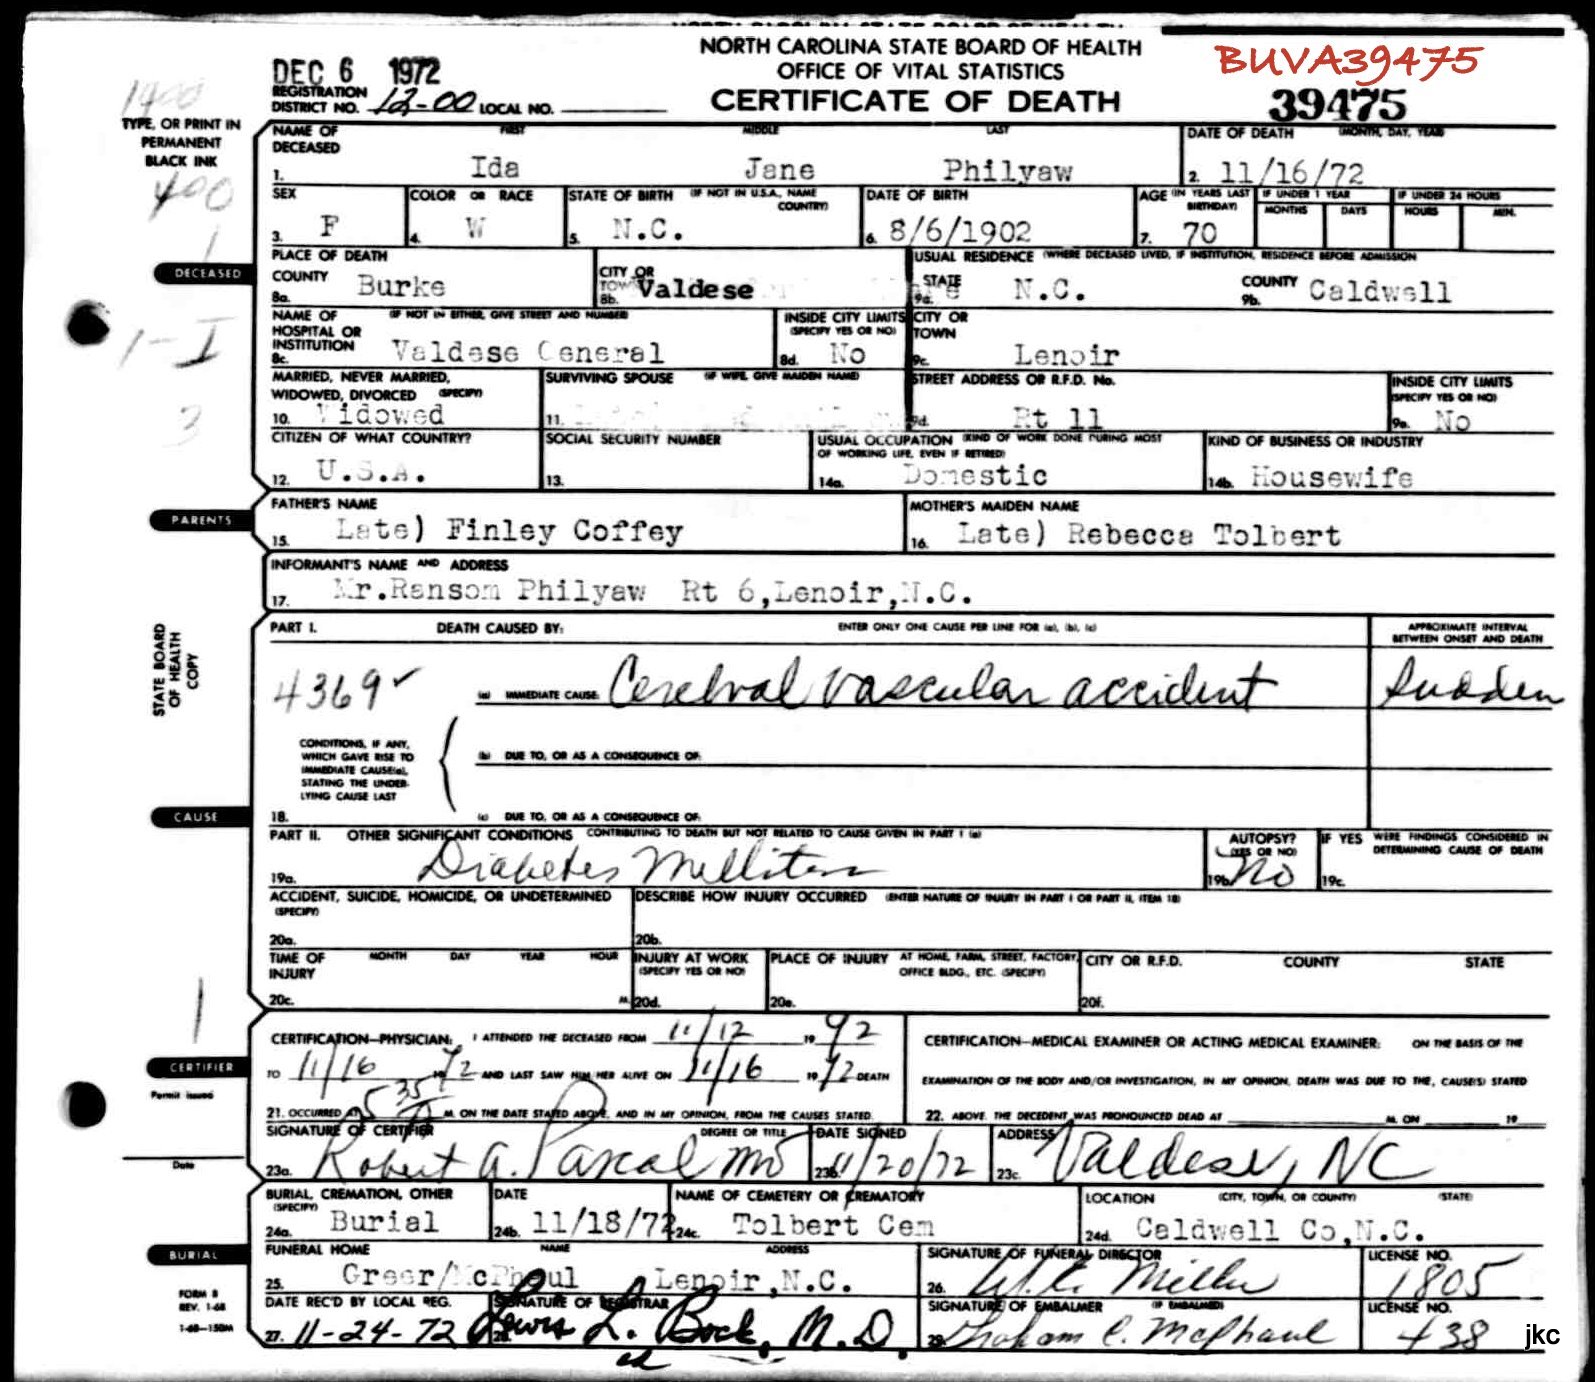 NORTH CAROLINA STATE BOARD OF HEALTH
OFFICE OF VITAL STATISTICS
CERTIFICATE OF DEATH
BUVA39475
39475
DEC 6 1972
REGISTRATION DISTRICT NO. 12-00 LOCAL NO.
1400
TYPE, OR PRINT IN
PERMANENT
BLACK INK
400
1
NAME OF DECEASED FIRST MIDDLE LAST
1. Ida Jane Philyaw
DATE OF DEATH (MONTH, DAY, YEAR)
2. 11/16/72
SEX
3. F
COLOR OR RACE
4. W
STATE OF BIRTH (IF NOT IN U.S.A., NAME COUNTRY)
5. N.C.
DATE OF BIRTH
6. 8/6/1902
AGE (IN YEARS LAST BIRTHDAY)
7. 70
IF UNDER 1 YEAR
MONTHS DAYS
IF UNDER 24 HOURS
HOURS MIN.
DECEASED
PLACE OF DEATH
COUNTY
8a. Burke
CITY OR TOWN
8b. Valdese
USUAL RESIDENCE (WHERE DECEASED LIVED, IF INSTITUTION, RESIDENCE BEFORE ADMISSION
STATE
9a. N.C.
COUNTY
9b. Caldwell
NAME OF HOSPITAL OR INSTITUTION (IF NOT IN EITHER, GIVE STREET AND NUMBER)
8c. Valdese General
INSIDE CITY LIMITS (SPECIFY YES OR NO)
8d. No
CITY OR TOWN
9c. Lenoir
1-I
3
MARRIED, NEVER MARRIED, WIDOWED, DIVORCED (SPECIFY)
10. Widowed
SURVIVING SPOUSE (IF WIFE, GIVE MAIDEN NAME)
11.
STREET ADDRESS OR R.F.D. No.
9d. Rt 11
INSIDE CITY LIMITS (SPECIFY YES OR NO)
9e. No
CITIZEN OF WHAT COUNTRY?
12. U.S.A.
SOCIAL SECURITY NUMBER
13.
USUAL OCCUPATION (KIND OF WORK DONE DURING MOST OF WORKING LIFE, EVEN IF RETIRED)
14a. Domestic
KIND OF BUSINESS OR INDUSTRY
14b. Housewife
PARENTS
FATHER'S NAME
15. Late) Finley Coffey
MOTHER'S MAIDEN NAME
16. Late) Rebecca Tolbert
INFORMANT'S NAME AND ADDRESS
17. Mr.Ransom Philyaw Rt 6,Lenoir,N.C.
STATE BOARD
OF HEALTH
COPY
PART I. DEATH CAUSED BY: ENTER ONLY ONE CAUSE PER LINE FOR (a), (b), (c)
APPROXIMATE INTERVAL BETWEEN ONSET AND DEATH
4369
(a) IMMEDIATE CAUSE: Cerebral vascular accident Sudden
CONDITIONS, IF ANY,
WHICH GAVE RISE TO
IMMEDIATE CAUSE(a),
STATING THE UNDER-
LYING CAUSE LAST
(b) DUE TO, OR AS A CONSEQUENCE OF:
CAUSE
18. (c) DUE TO, OR AS A CONSEQUENCE OF:
PART II. OTHER SIGNIFICANT CONDITIONS CONTRIBUTING TO DEATH BUT NOT RELATED TO CAUSE GIVEN IN PART I (a)
19a. Diabetes Mellitus
AUTOPSY? (YES OR NO)
19b. No
IF YES WERE FINDINGS CONSIDERED IN DETERMINING CAUSE OF DEATH
19c.
ACCIDENT, SUICIDE, HOMICIDE, OR UNDETERMINED (SPECIFY)
20a.
DESCRIBE HOW INJURY OCCURRED (ENTER NATURE OF INJURY IN PART I OR PART II, ITEM 18)
20b.
TIME OF INJURY MONTH DAY YEAR HOUR
20c. M.
INJURY AT WORK (SPECIFY YES OR NO)
20d.
PLACE OF INJURY AT HOME, FARM, STREET, FACTORY, OFFICE BLDG., ETC. (SPECIFY)
20e.
CITY OR R.F.D. COUNTY STATE
20f.
1
CERTIFIER
Permit issued
Date
CERTIFICATION—PHYSICIAN: I ATTENDED THE DECEASED FROM 11/12 1972
TO 11/16 1972 AND LAST SAW HIM/HER ALIVE ON 11/16 1972 DEATH
21. OCCURRED AT 5 35 M. ON THE DATE STATED ABOVE, AND IN MY OPINION, FROM THE CAUSES STATED.
CERTIFICATION—MEDICAL EXAMINER OR ACTING MEDICAL EXAMINER: ON THE BASIS OF THE
EXAMINATION OF THE BODY AND/OR INVESTIGATION, IN MY OPINION, DEATH WAS DUE TO THE, CAUSE(S) STATED
22. ABOVE. THE DECEDENT WAS PRONOUNCED DEAD AT M. ON 19
SIGNATURE OF CERTIFIER DEGREE OR TITLE
23a. Robert A. Pascal MD
DATE SIGNED
23b. 11/20/72
ADDRESS
23c. Valdese, NC
BURIAL, CREMATION, OTHER (SPECIFY)
24a. Burial
DATE
24b. 11/18/72
NAME OF CEMETERY OR CREMATORY
24c. Tolbert Cem
LOCATION (CITY, TOWN, OR COUNTY) (STATE)
24d. Caldwell Co,N.C.
BURIAL
FUNERAL HOME NAME ADDRESS
25. Greer/McPhaul Lenoir,N.C.
SIGNATURE OF FUNERAL DIRECTOR
26. W.C. Miller
LICENSE NO.
1805
FORM 8
REV. 1-68
1-68—150M
DATE REC'D BY LOCAL REG.
27. 11-24-72
SIGNATURE OF REGISTRAR
28. Lewis L. Bock, M.D.
SIGNATURE OF EMBALMER (IF EMBALMED)
29. Graham C. McPhaul
LICENSE NO.
438
jkc